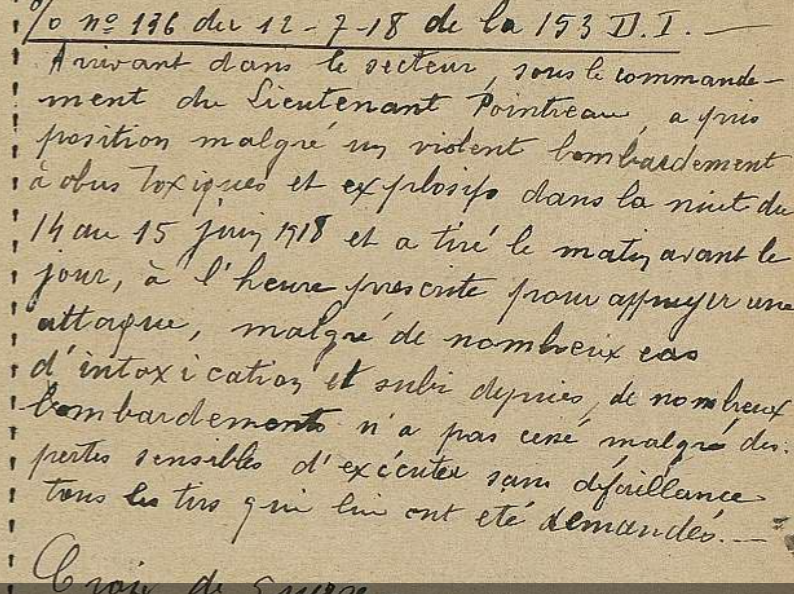 O nº 136 du 12-7-18 de la 153 D.I. —
Arrivant dans le secteur, sous le commande-
ment du Lieutenant Pointreau, a pris
position malgré un violent bombardement
à obus toxiques et explosifs dans la nuit du
14 au 15 juin 1918 et a tiré le matin avant le
jour, à l'heure prescrite pour appuyer une
attaque, malgré de nombreux cas
d'intoxication et subi depuis, de nombreux
bombardements n'a pas cessé malgré des
pertes sensibles d'exécuter sans défaillance
tous les tirs qui lui ont été demandés. —
Croix de guerre